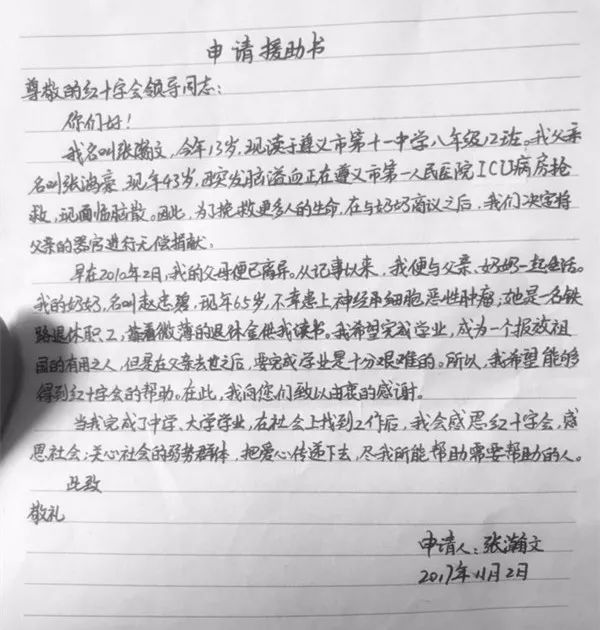 申请援助书
尊敬的红十字会领导同志：
你们好！
我名叫张瀚文，今年13岁，现读于遵义市第十一中学八年级12班。我父亲
名叫张鸿豪，现年43岁，因突发脑溢血正在遵义市第一人民医院ICU病房抢
救，现面临脑散。因此，为了挽救更多人的生命，在与奶奶商议之后，我们决定将
父亲的器官进行无偿捐献。
早在2010年2月，我的父母便已离异。从记事以来，我便与父亲、奶奶一起生活。
我的奶奶，名叫赵忠碧，现年65岁，不幸患上神经母细胞恶性肿瘤；她是一名铁
路退休职工，靠着微薄的退休金供我读书。我希望完成学业，成为一个报效祖
国的有用之人，但是在父亲去世之后，要完成学业是十分艰难的。所以，我希望能够
得到红十字会的帮助。在此，我向您们致以由衷的感谢。
当我完成了中学、大学学业，在社会上找到工作后，我会感恩红十字会，感
恩社会；关心社会的弱势群体，把爱心传递下去，尽我所能帮助需要帮助的人。
此致
敬礼
申请人：张瀚文
2017年11月2日